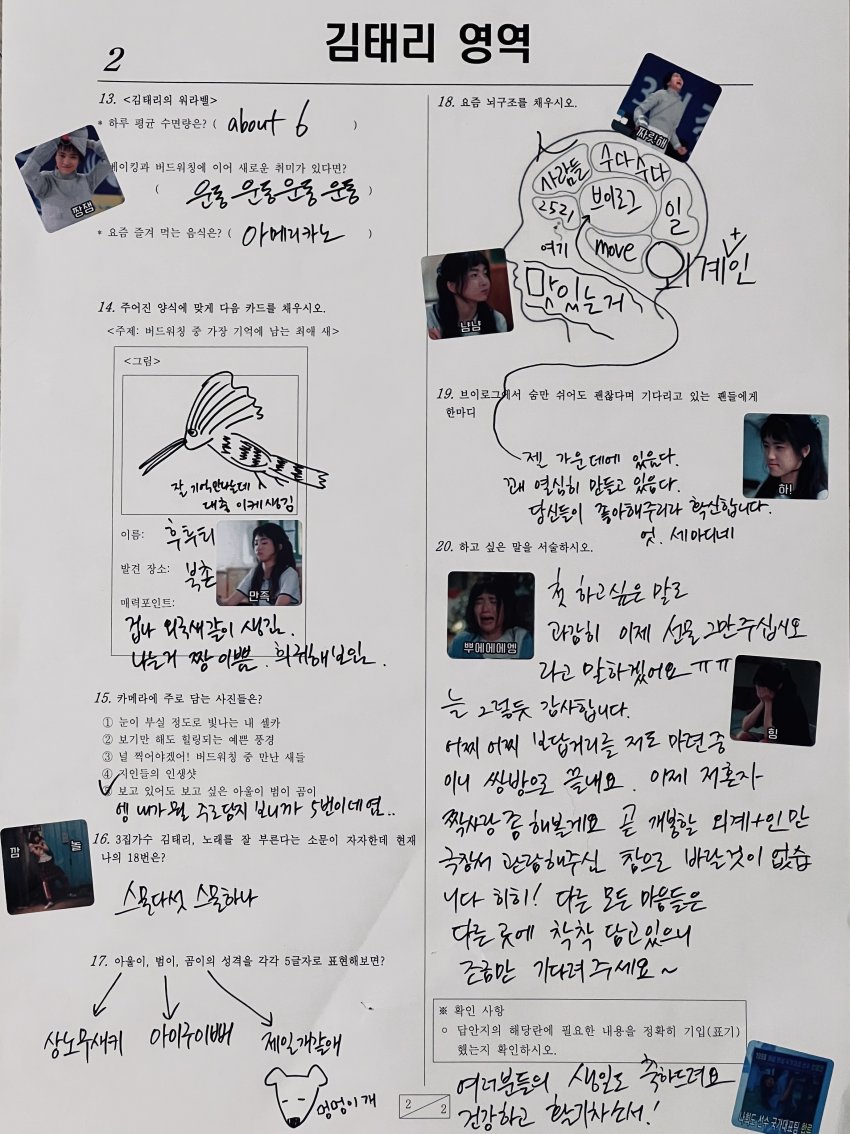 2
김태리 영역
13. <김태리의 워라벨>
* 하루 평균 수면량은? ( about 6 )
베이킹과 버드워칭에 이어 새로운 취미가 있다면?
( 운동 운동 운동 운동 )
* 요즘 즐겨 먹는 음식은? ( 아메리카노 )
짱잼
14. 주어진 양식에 맞게 다음 카드를 채우시오.
<주제: 버드워칭 중 가장 기억에 남는 최애 새>
<그림>
잘 기억안나는데
대충 이케생김
이름: 후투티
발견 장소: 북촌
매력포인트:
만족
겁나 외국새같이 생김.
나는거 짱 이쁨. 희귀해보임.
15. 카메라에 주로 담는 사진들은?
① 눈이 부실 정도로 빛나는 내 셀카
② 보기만 해도 힐링되는 예쁜 풍경
③ 널 찍어야겠어! 버드워칭 중 만난 새들
④ 지인들의 인생샷
⑤ 보고 있어도 보고 싶은 아울이 범이 곰이
엥 내가 뭘 주로담지 보니까 5번이네염..
깜 놀
16. 3집가수 김태리, 노래를 잘 부른다는 소문이 자자한데 현재
나의 18번은?
스물다섯 스물하나
17. 아울이, 범이, 곰이의 성격을 각각 5글자로 표현해보면?
상노무새키 아이구이뻐 제일개같애
멍멍이 개
18. 요즘 뇌구조를 채우시오.
짜릿해
사람들 수다수다
2521 브이로그 일
여기 move 외계+인
맛있는거
냠냠
19. 브이로그에서 숨만 쉬어도 괜찮다며 기다리고 있는 팬들에게
한마디
젤 가운데에 있읍다.
꽤 열심히 만들고 있읍다.
당신들이 좋아해주리라 확신합니다.
엇. 세마디네
하!
20. 하고 싶은 말을 서술하시오.
뿌에에에엥
첫 하고싶은 말로
과감히 이제 선물 그만 주십시오
라고 말하겠어요 ㅠㅠ
힝
늘 그렇듯 감사합니다.
어찌 어찌 보답거리를 저도 마련중
이니 쌍방으로 끝내요. 이제 저혼자
짝사랑 좀 해볼게요 곧 개봉할 외계+인만
극장서 관람해주신 참으로 바랄것이 없습
니다 히히! 다른 모든 마음들은
다른 곳에 착착 담고있으니
조금만 기다려주세요~
※ 확인 사항
○ 답안지의 해당란에 필요한 내용을 정확히 기입(표기)
했는지 확인하시오.
여러분들의 생일도 축하드려요
건강하고 활기차소서!
2 2
나희도 선수 국가대표팀 합류